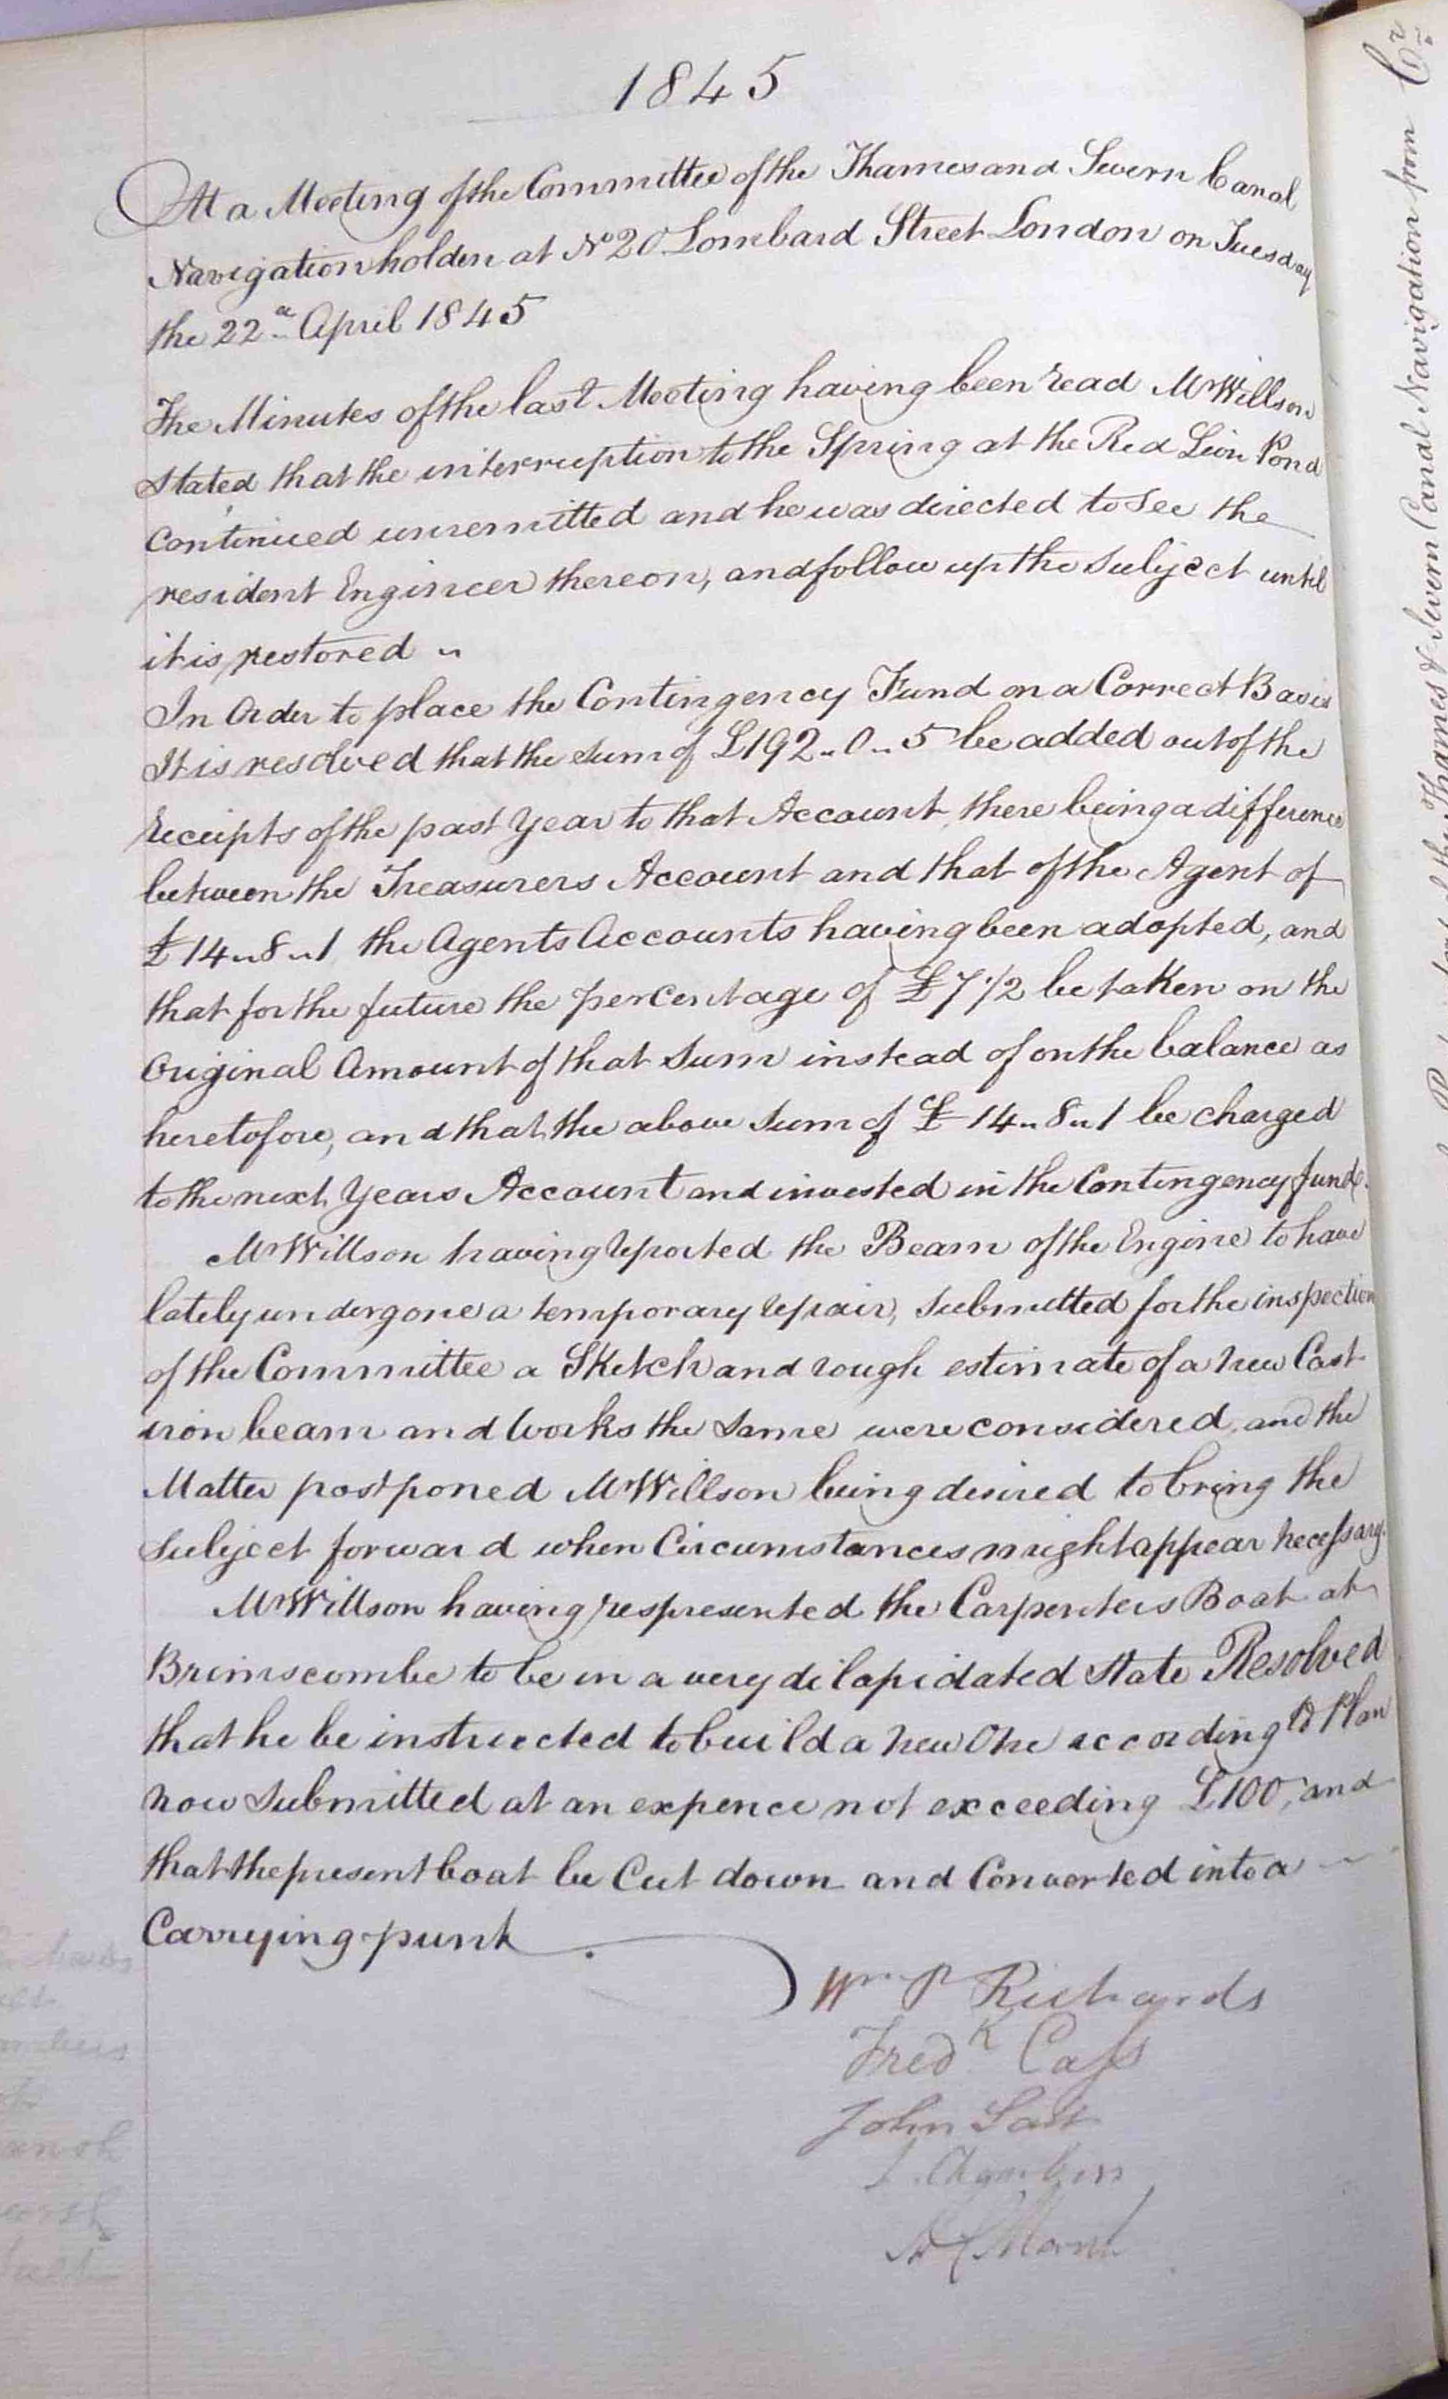 1845
At a Meeting of the Committee of the Thames and Severn Canal
Navigation holden at No 20 Lombard Street London on Tuesday
the 22d April 1845
The Minutes of the last Meeting having been read Mr Willson
stated that the interruption to the Spring at the Red Lion Pond
continued unremitted and he was directed to see the
resident Engineer thereon, and follow up the subject until
it is restored "
In Order to place the Contingency Fund on a Correct Basis
It is resolved that the sum of £192 " 0 " 5 be added out of the
receipts of the past Year to that Account, there being a difference
between the Treasurers Account and that of the Agent of
£14 " 8 " 1 the Agents Accounts having been adopted, and
that for the future the percentage of £7 1/2 be taken on the
Original Amount of that Sum instead of on the balance as
heretofore, and that the above Sum of £14 " 8 " 1 be charged
to the next Years Account and invested in the Contingency fund.
Mr Willson having reported the Beam of the Engine to have
lately undergone a temporary repair, submitted for the inspection
of the Committee a Sketch and rough estimate of a new Cast
iron beam and Works the Same were considered, and the
Matter postponed Mr Willson being desired to bring the
subject forward when Circumstances might appear necessary.
Mr Willson having respresented the Carpenters Boat at
Brimscombe to be in a very dilapidated state Resolved
that he be instructed to build a new One according to Plan
now submitted at an expence not exceeding £100, and
that the present boat be Cut down and Converted into a
Carrying punt
Wm P Richards
Fredk Cass
John
Chambers
Thames & Severn Canal Navigation from Cr